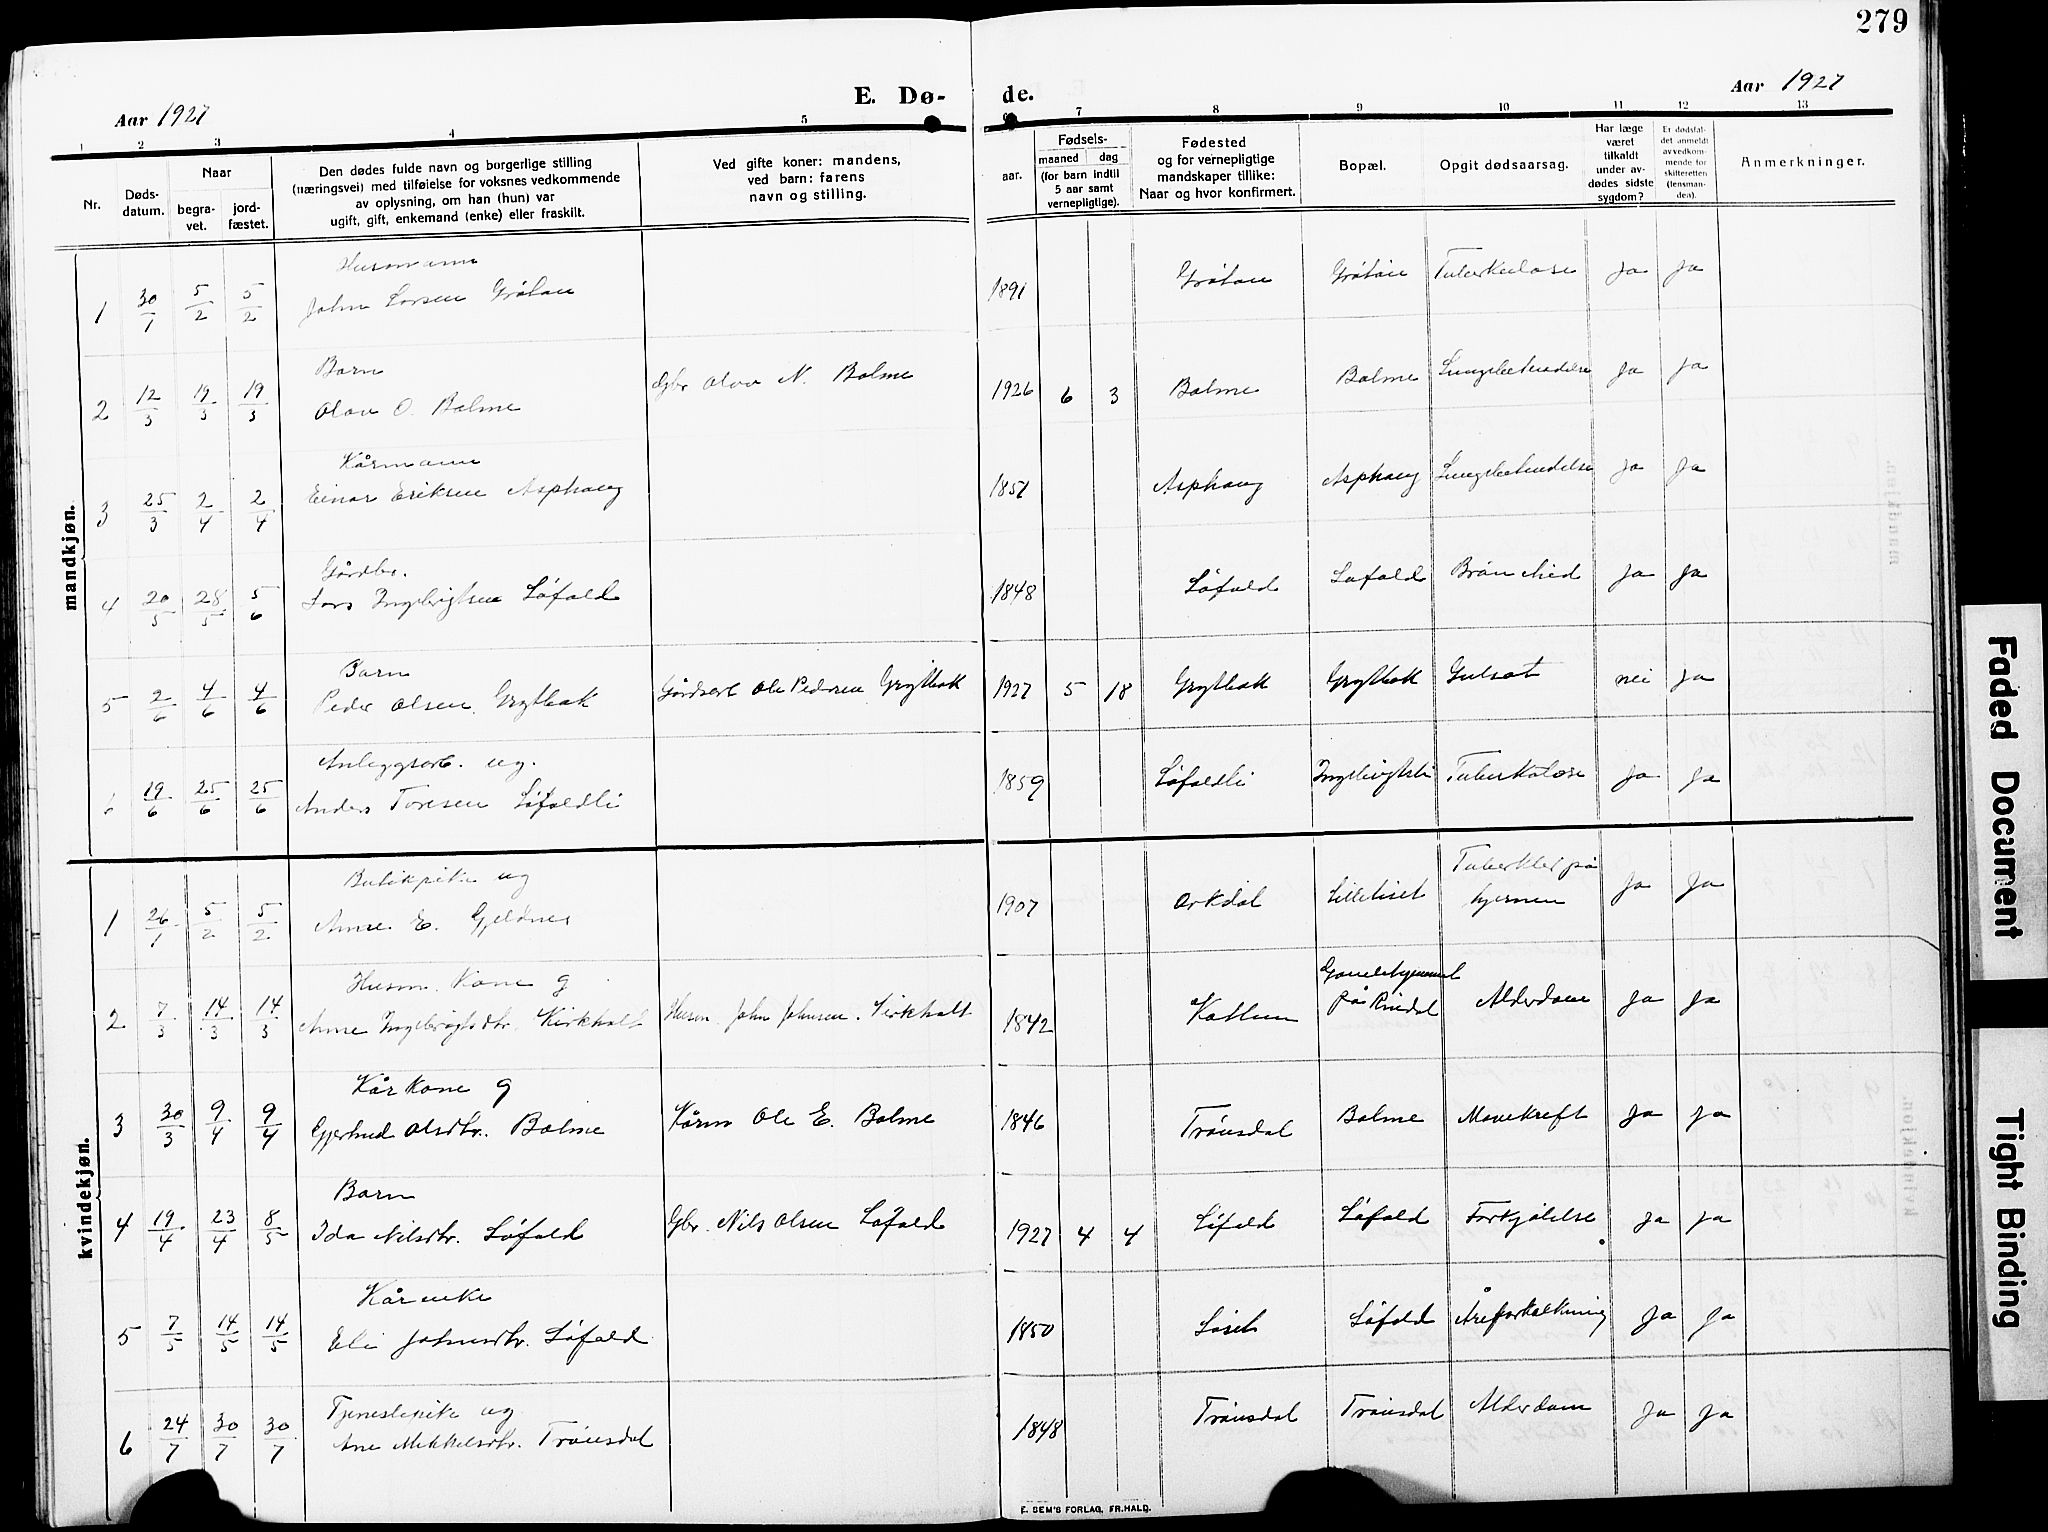 279
Aar 1927
E. Dø-
de.
Aar 1927
1 2 3 4 5 6 7 8 9 10 11 12 13
Nr.
Døds-
datum.
Naar
begra-
vet.
jord-
fæstet.
Den dødes fulde navn og borgerlige stilling
(næringsvei) med tilføielse for voksnes vedkommende
av oplysning, om han (hun) var
ugift, gift, enkemand (enke) eller fraskilt.
Ved gifte koner: mandens,
ved barn: farens
navn og stilling.
Fødsels-
aar.
maaned dag
(for barn indtil
5 aar samt
vernepligtige).
Fødested
og for vernepligtige
mandskaper tillike:
Naar og hvor konfirmert.
Bopæl.
Opgit dødsaarsag.
Har læge
været
tilkaldt
under av-
dødes sidste
sygdom?
Er dødsfal-
det anmeldt
av vedkom-
mende for
skifteretten
(lensman-
den).
Anmerkninger.
mandkjøn.
Husmann
1 30/1 5/2 5/2 John Larsen Gråtan 1891 Gråtan Gråtan Tuberkulose Ja Ja
Barn
2 12/3 19/3 19/3 Olav O. Bolme Gbr Olav N. Bolme 1926 6 3 Bolme Bolme Lungebetendelse Ja Ja
Kårmann
3 25/3 2/4 2/4 Einar Eriksen Asphaug 1851 Asphaug Asphaug Lungebetendelse Ja Ja
Gårdbr.
4 20/5 28/5 5/6 Lars Ingebrigtsen Løfald 1848 Løfald Løfald Ja Ja
Barn
5 2/6 4/6 4/6 Peder Olsen Grytbak Gårdsarb Ole Pedersen Grytbak 1927 5 18 Grytbak Grytbak Gulsot nei Ja
Anleggsarb. ug.
19/6 25/6 25/6 Anders Toresen Løfaldli 1859 Løfaldli Ingebrigtsli Tuberkulose Ja Ja
kvindekjøn.
Butikpike ug
Tuberkler på
1 26/1 5/2 5/2 Anne E. Gjeldnes 1907 Orkdal Lilleliset hjernen Ja Ja
Husm. Kone g
Gamlehjemmet
2 7/3 14/3 14/3 Anne Ingebrigtsdtr. Kirkholt Husm. John Johnsen Kirkholt 1842 på Rindal Alderdom Ja Ja
Kårkone g
3 30/3 9/4 9/4 Gjertrud Olsdtr. Bolme Kårm Ole E. Bolme 1846 Trønsdal Bolme Mavekreft Ja Ja
Barn
4 19/4 23/4 8/5 Ida Nilsdtr. Løfald Gbr. Nils Olsen Løfald 1927 4 4 Løfald Løfald Forkjølelse Ja Ja
Kårenke
5 7/5 14/5 14/5 Eli Johnsdtr. Løfald 1850 Løset Løfald Åreforkalkning Ja Ja
Tjenestepike ug
6 24/7 30/7 30/7 Ane Mikkelsdtr. Trønsdal 1848 Trønsdal Trønsdal Alderdom Ja Ja
E. SEM'S FORLAG, FR.HALD.
Faded Document
Tight Binding